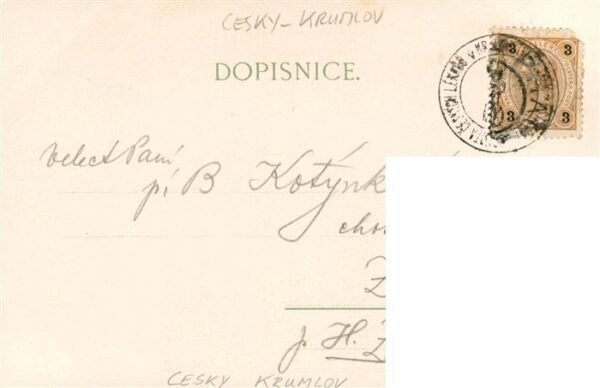 CESKY-KRUMLOV
DOPISNICE.
3 3
3 3
velect Paní
pí B Kotýnk
cho
Z
p. H. Z
CESKY KRUMLOV